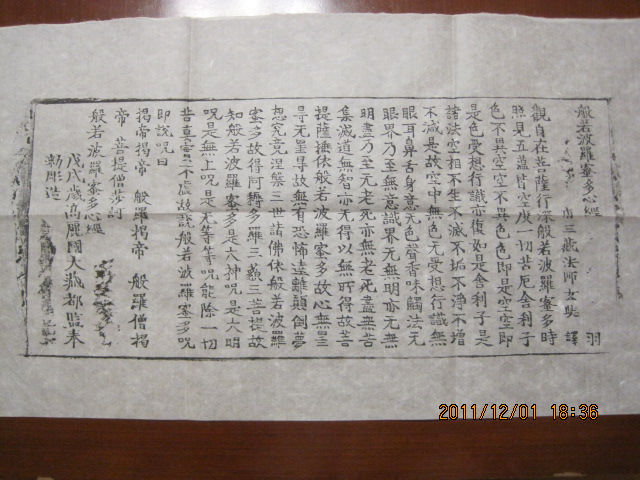 般若波羅蜜多心經
三藏法師玄奘 譯 羽
觀自在菩薩行深般若波羅蜜多時
照見五蘊皆空度一切苦厄舍利子
色不異空空不異色色即是空空即
是色受想行識亦復如是舍利子是
諸法空相不生不滅不垢不淨不增
不減是故空中無色无受想行識無
眼耳鼻舌身意无色聲香味觸法无
眼界乃至無意識界无無明亦无無
明盡乃至无老死亦無老死盡無苦
集滅道無智亦无得以無所得故菩
提薩埵依般若波羅蜜多故心無罣
导无罣导故無有恐怖遠離顛倒夢
想究竟涅槃三世諸佛依般若波羅
蜜多故得阿耨多羅三藐三菩提故
知般若波羅蜜多是大神呪是大明
呪是無上呪是无等等呪能除一切
苦真實不虛故說般若波羅蜜多呪
即說呪曰
揭帝揭帝 般羅揭帝 般羅僧揭
帝 菩提僧莎訶
般若波羅蜜多心經
戊戌歲高麗國大藏都監奉
勑彫造
2011/12/01 18:36